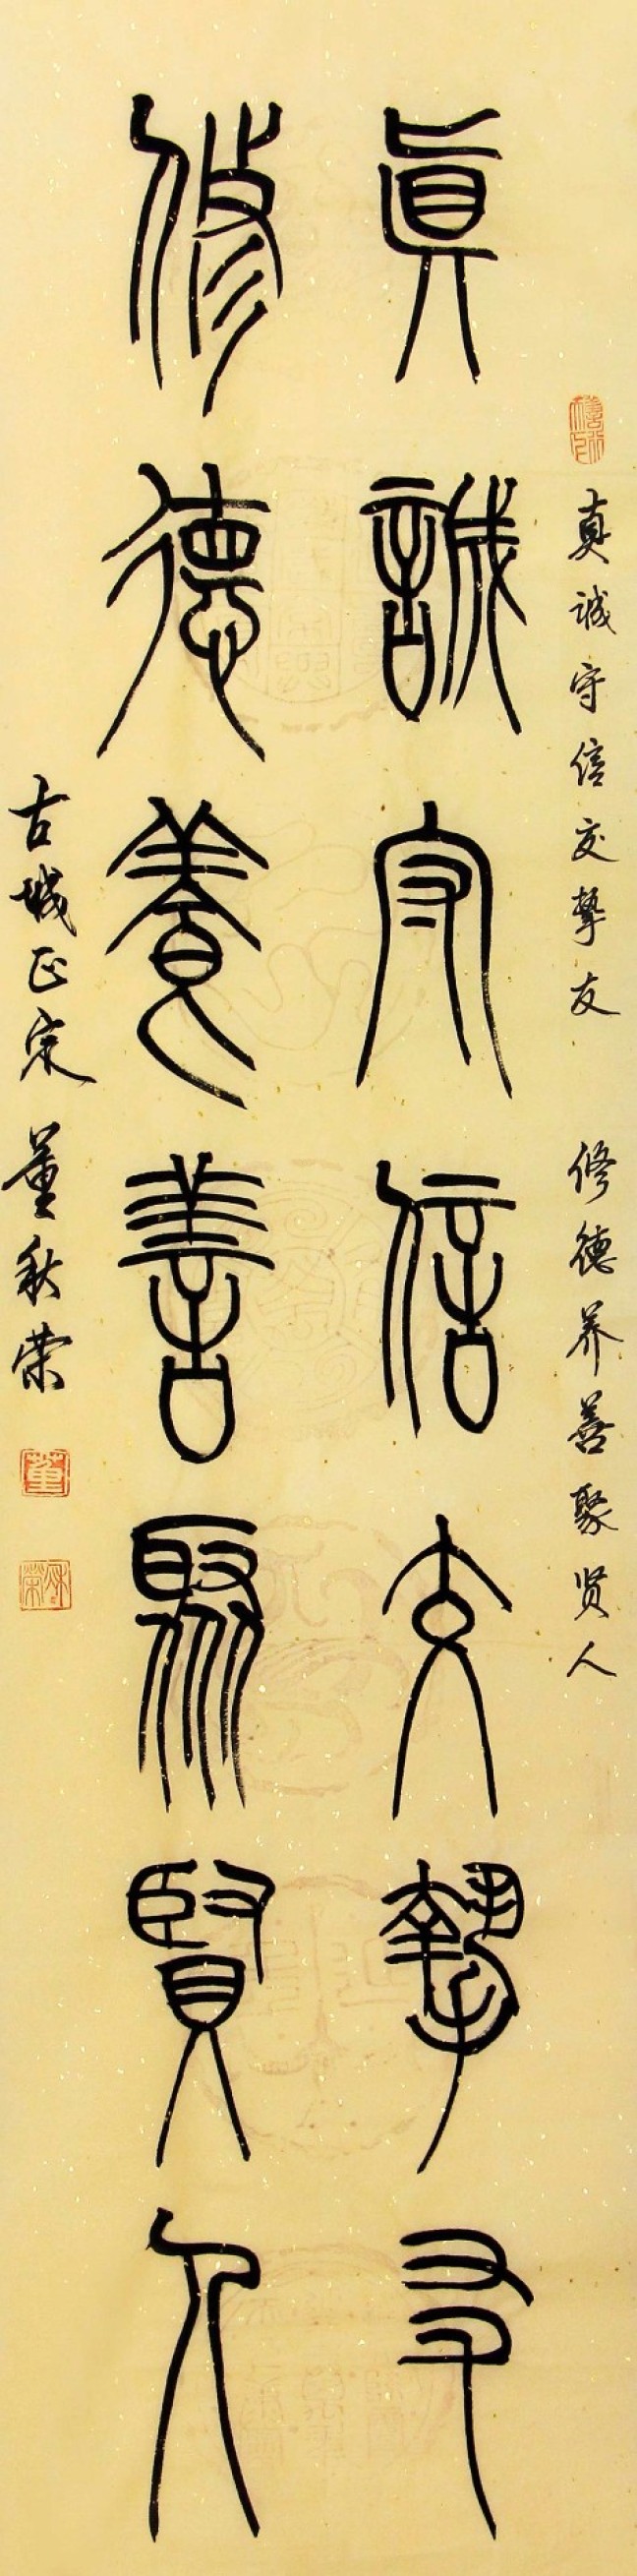 真诚守信交挚友 修德养善聚贤人
眞誠守信交摯友
修德養善聚賢人
古城正定 董秋荣
董
秋荣